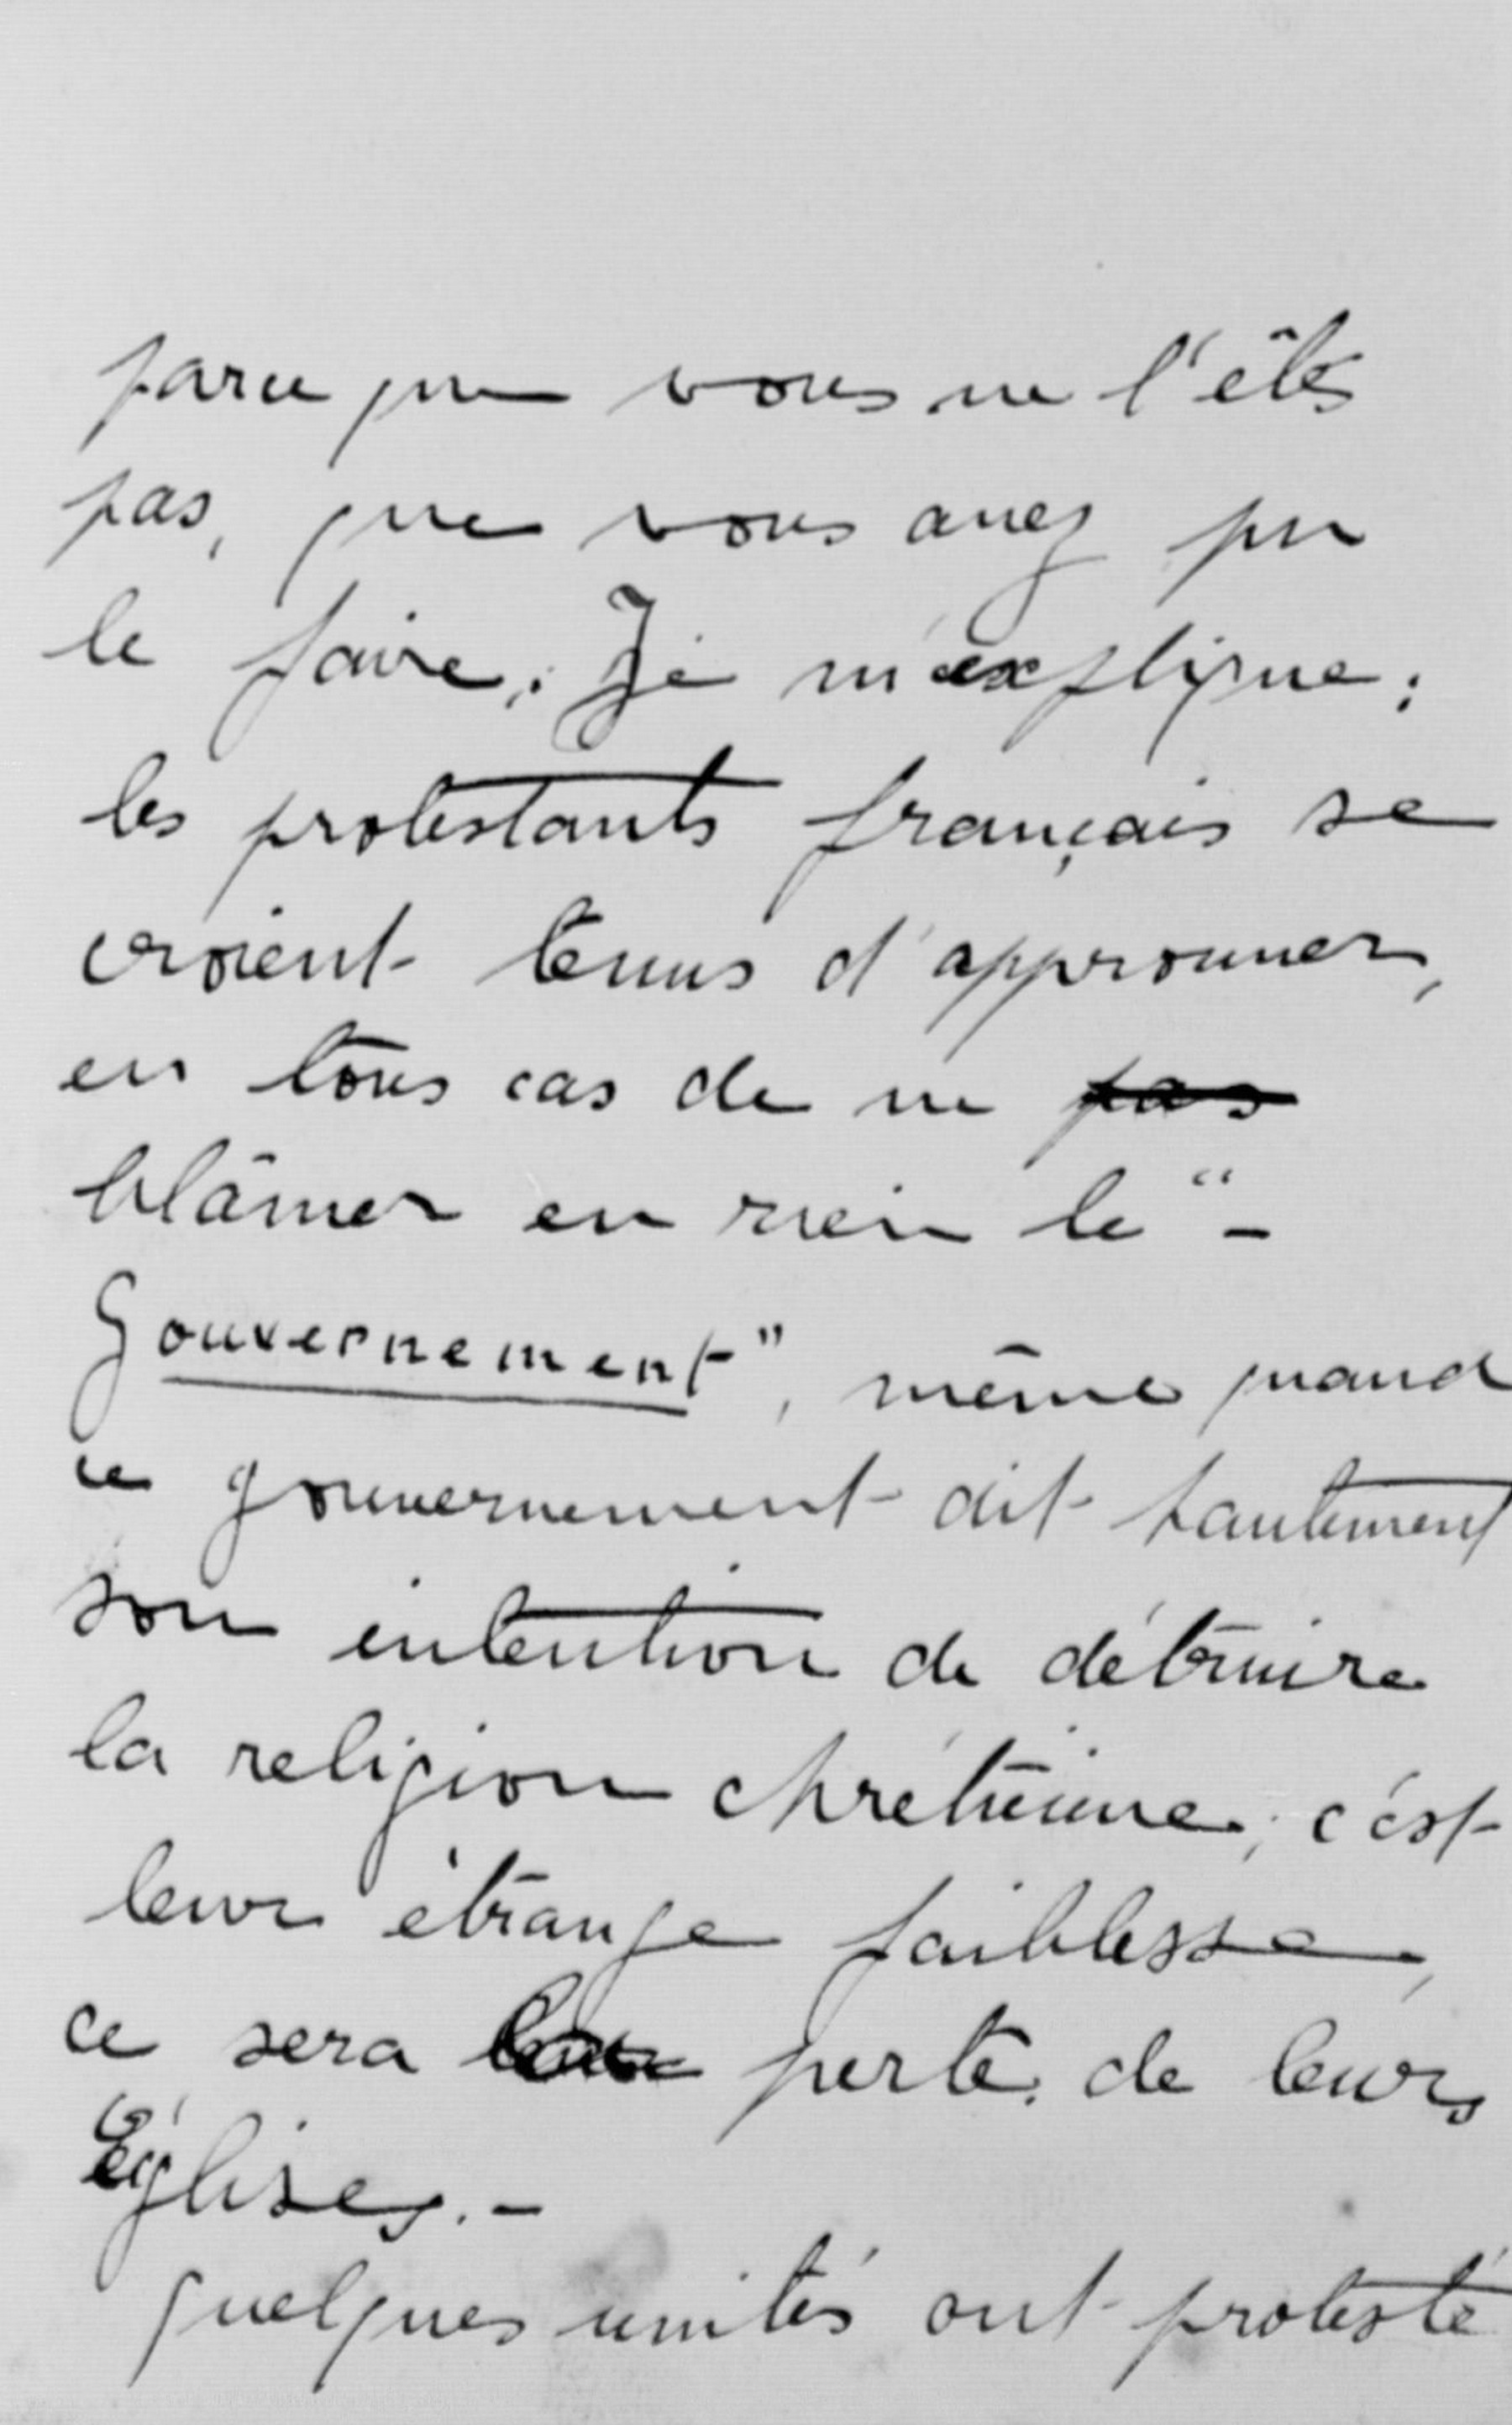 parce que vous ne l'êtes
pas, que vous avez pu
le faire. Je m'explique :
les protestants français se
croient tenus d'approuver,
en tous cas de ne pas
blâmer en rien le "-
Gouvernement", même quand
ce gouvernement dit hautement
son intention de détruire
la religion chrétienne ; c'est
leur étrange faiblesse,
ce sera leur perte de leurs
Églises. -
quelques unités ont protesté